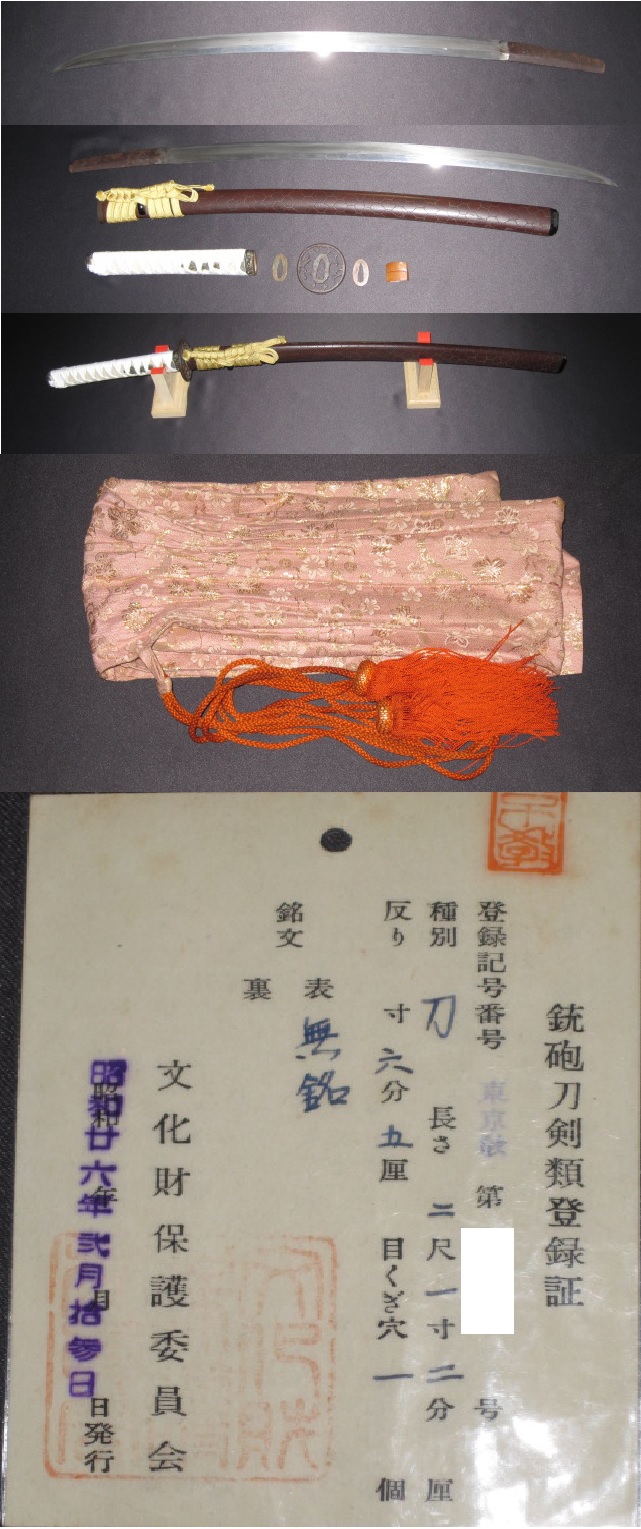 銃砲刀剣類登録証
登録記号番号 東京 第 号
種別 刀 長さ 二尺一寸二分 厘
反り 寸六分五厘 目くぎ穴 一 個
銘文
表 無銘
裏
文化財保護委員会
昭和 年 月 日発行
昭和廿六年弐月拾参日